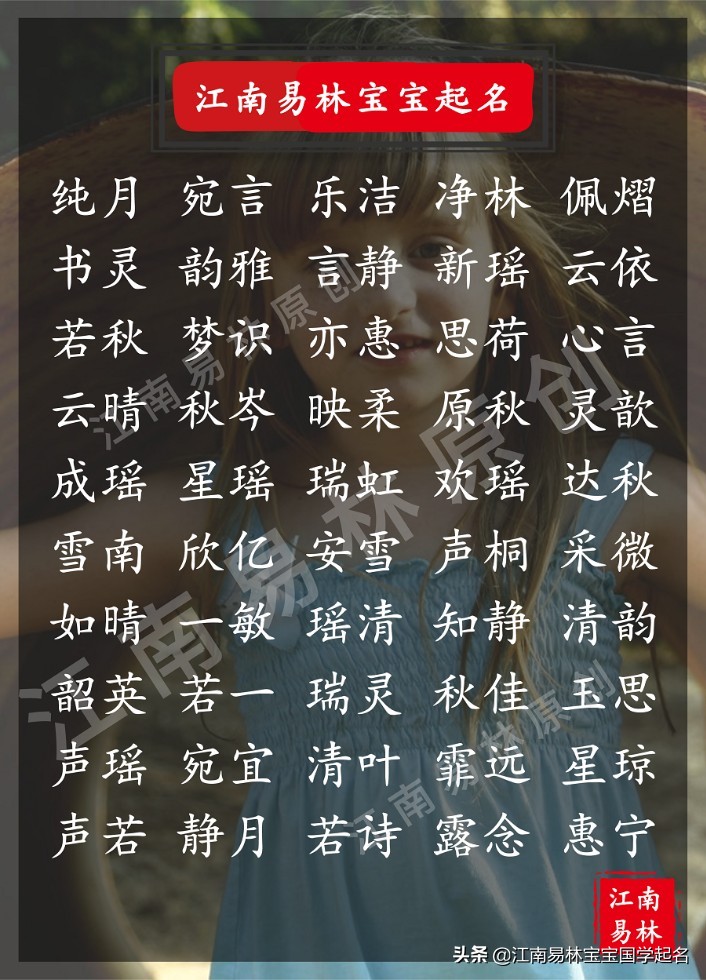 江南易林宝宝起名
纯月 宛言 乐洁 净林 佩熠
书灵 韵雅 言静 新瑶 云依
若秋 梦识 亦惠 思荷 心言
云晴 秋岑 映柔 原秋 灵歆
成瑶 星瑶 瑞虹 欢瑶 达秋
雪南 欣亿 安雪 声桐 采微
如晴 一敏 瑶清 知静 清韵
韶英 若一 瑞灵 秋佳 玉思
声瑶 宛宜 清叶 霏远 星琼
声若 静月 若诗 露念 惠宁
江南易林原创
江南易林原创
江南易林原创
江南
易林
头条 @江南易林宝宝国学起名